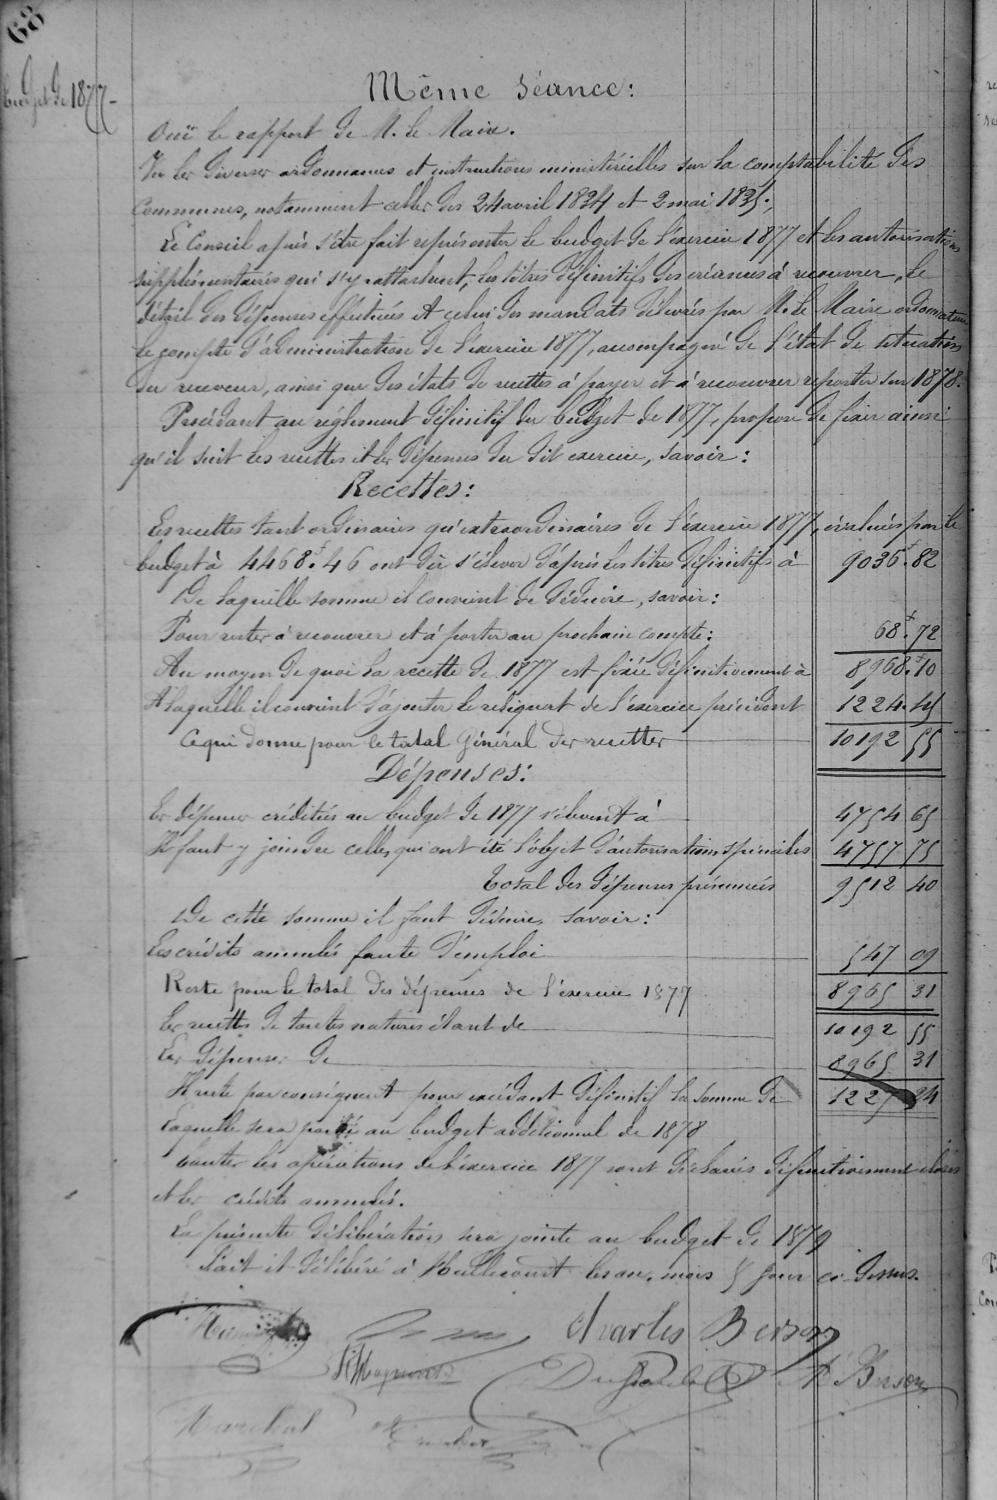 68
Budget de 1877
Même séance:
Ouï le rapport de M. le Maire.
Vu les diverses ordonnances et instructions ministérielles sur la comptabilité des
Communes, notamment celles des 24 avril 1834 et 2 mai 1835;
Le Conseil après s'être fait représenter le budget de l'exercice 1877 et les autorisations
supplémentaires qui s'y rattachent, les titres définitifs des créances à recouvrer, le
détail des dépenses effectuées et celui des mandats délivrés par M. le Maire ordonnateur
le compte d'administration de l'exercice 1877, accompagné de l'état de situation
du receveur, ainsi que des états de recettes à payer et à recouvrer reporter sur 1878.
Procédant au règlement définitif du budget de 1877, propose de fixer ainsi
qu'il suit les recettes et les dépenses du dit exercice, savoir:
Recettes:
Les recettes tant ordinaires qu'extraordinaires de l'exercice 1877, évaluées par le
budget à 4468f.46 ont dû s'élever d'après les titres définitifs à 9036f.82
De laquelle somme il convient de déduire, savoir:
Pour rester à recouvrer et à porter au prochain compte: 68f.72
Au moyen de quoi la recette de 1877 est fixée définitivement à 8968f.10
A laquelle il convient d'ajouter le reliquat de l'exercice précédent 1224.45
Ce qui donne pour le total général des recettes 10192 55
Dépenses:
Les dépenses créditées au budget de 1877 s'élèvent à 4754 65
Il faut y joindre celles qui ont été l'objet d'autorisations spéciales 4757 75
Total des dépenses présumées 9512 40
De cette somme il faut déduire, savoir:
Les crédits annulés faute d'emploi 547 09
Reste pour le total des dépenses de l'exercice 1877 8965 31
Les recettes de toutes natures étant de 10192 55
Les dépenses de 8965 31
Il reste par conséquent pour excédant définitif la somme de 1227 24
Laquelle sera portée au budget additionnel de 1878
toutes les opérations de l'exercice 1877 sont déclarées définitivement closes
et les crédits annulés.
La présente délibération sera jointe au budget de 1879
Fait et délibéré à les an, mois & jour ci-dessus.
Charles Berson
Berson
Marchal